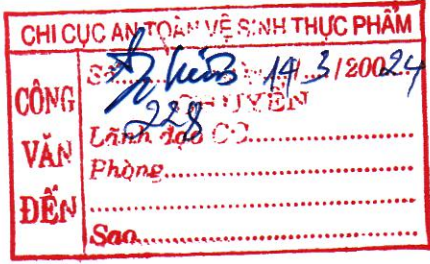 CHI CỤC AN TOÀN VỆ SINH THỰC PHẨM
CÔNG VĂN ĐẾN
Số 228 14/3/20024
CHUYỂN
Lãnh đạo CC
Phòng
Sao